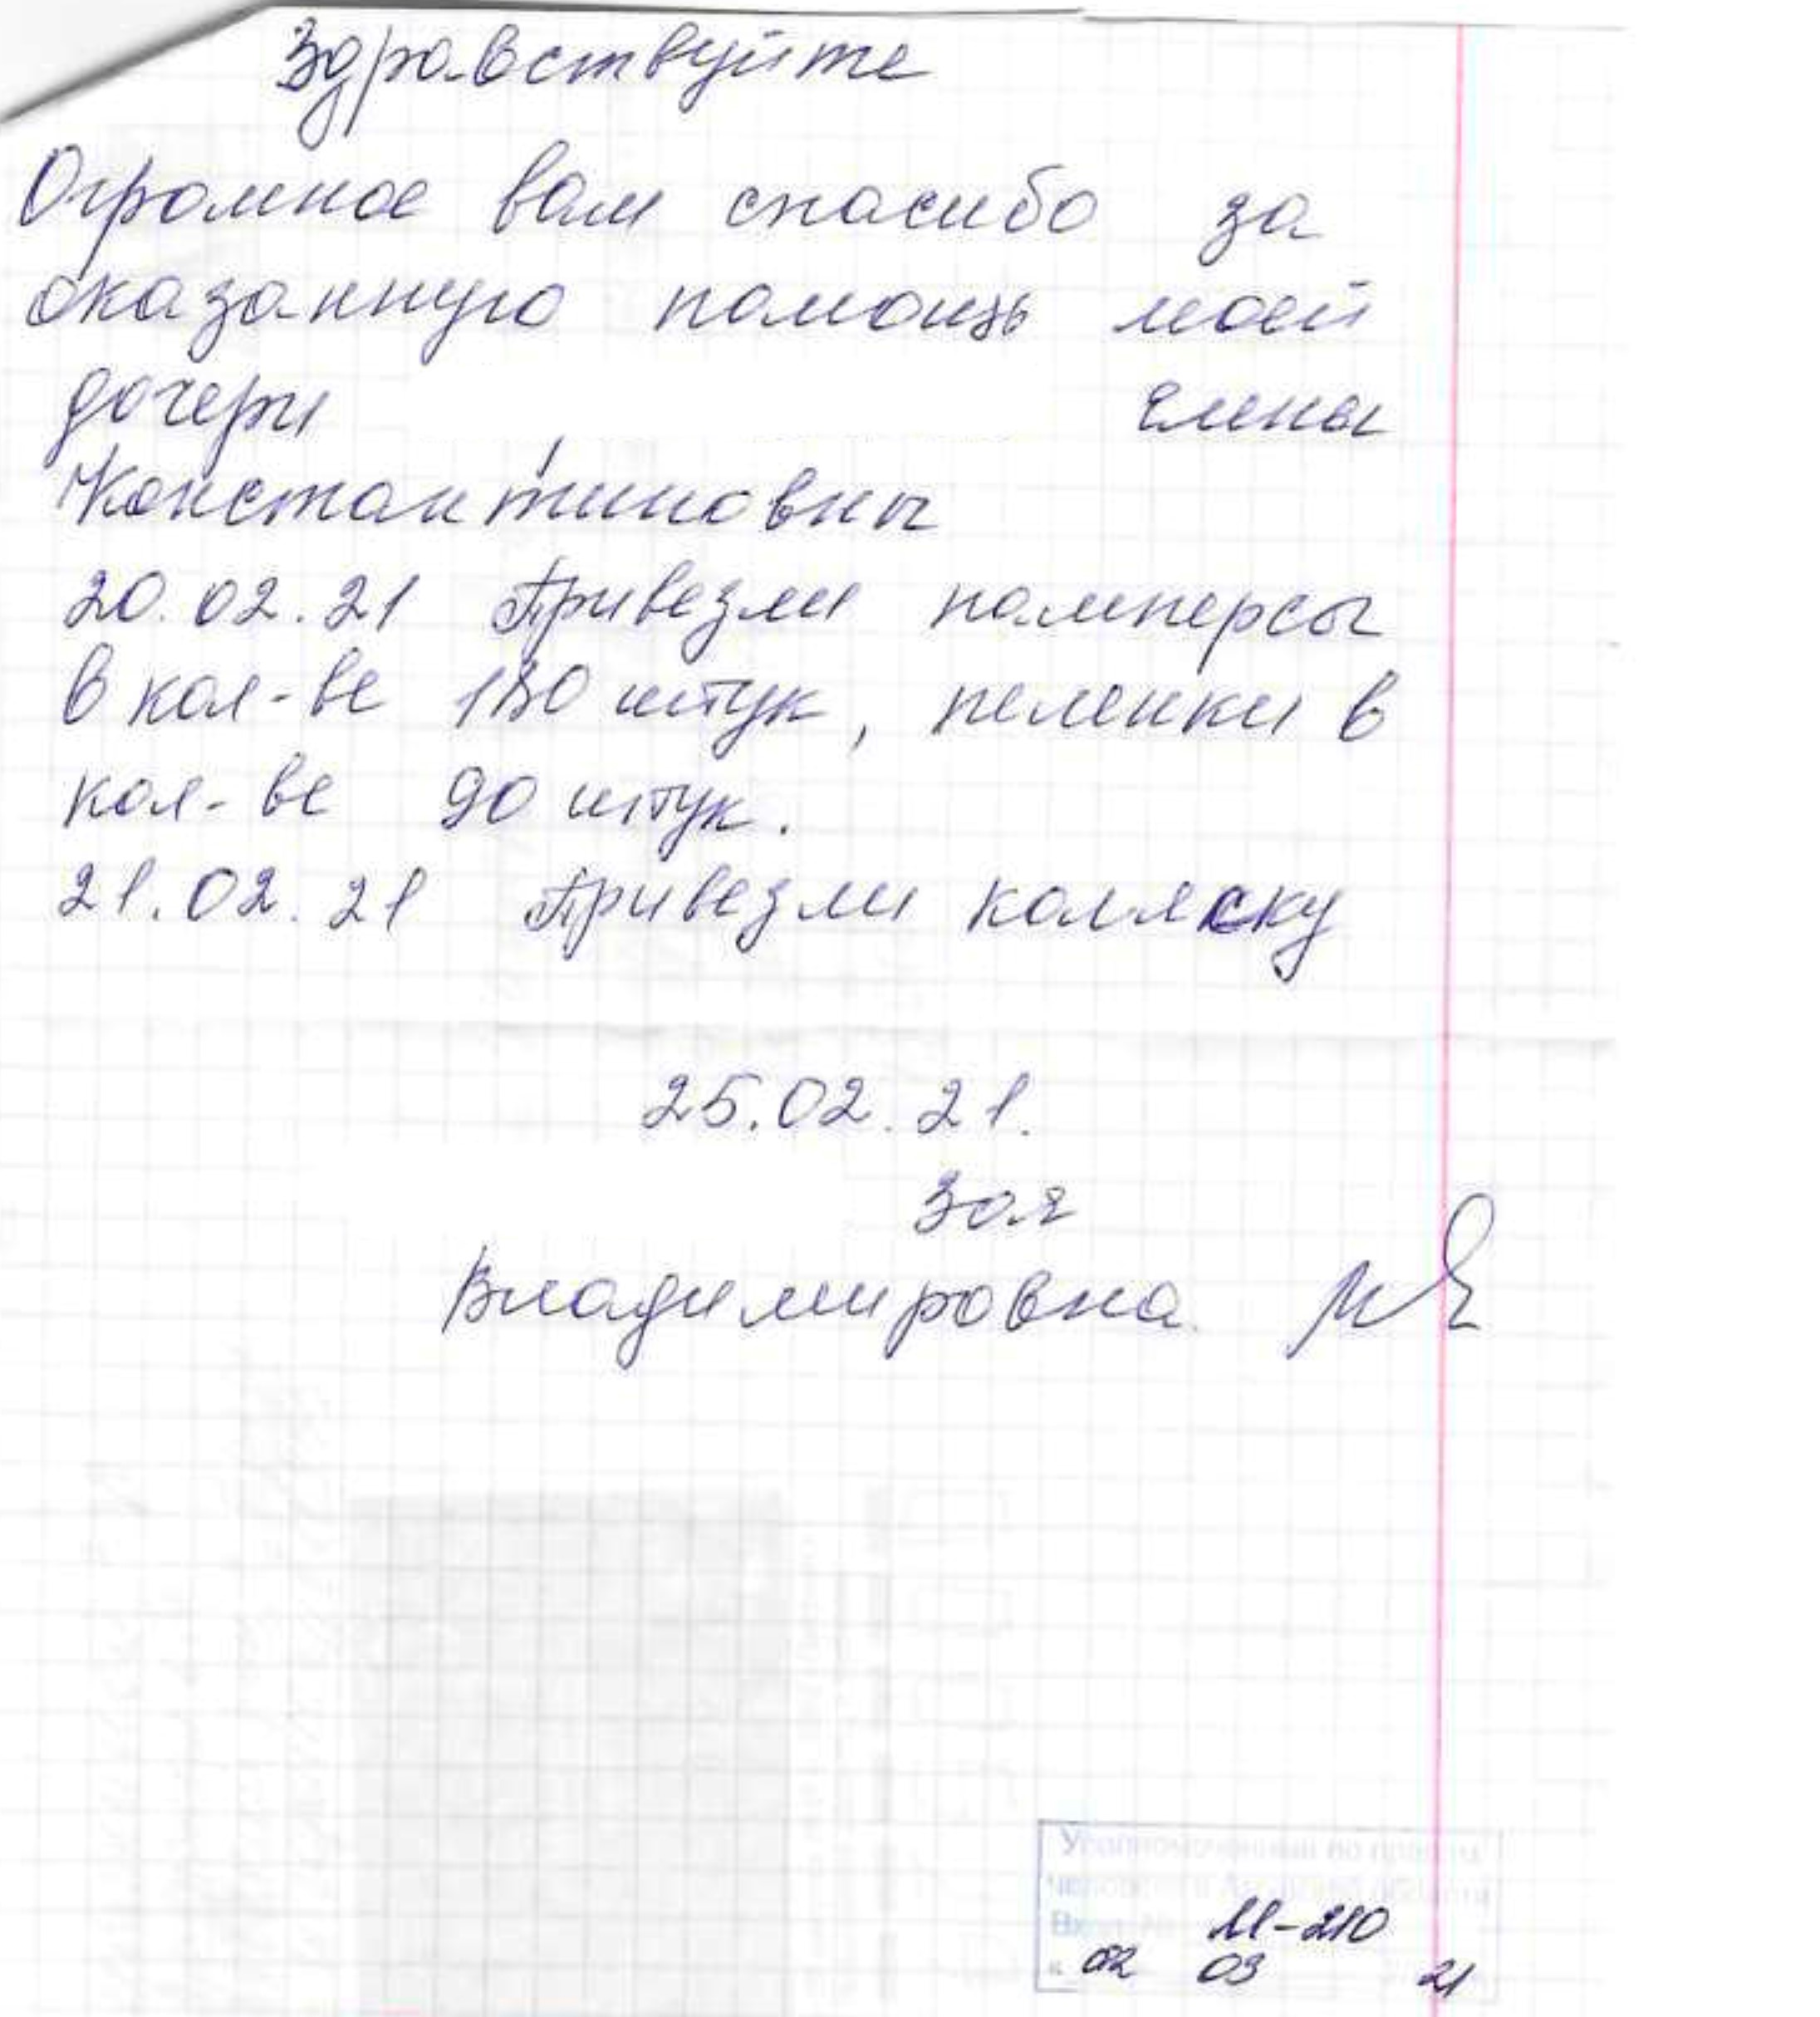 Здравствуйте
Огромное вам спасибо за
оказанную помощь моей
дочери Елены
Константиновны
20.02.21 Привезли памперсы
в кол-ве 180 штук, пеленки в
кол-ве 90 штук.
21.02.21 Привезли коляску
25.02.21.
Зоя
Владимировна
Уполномоченный по правам
человека в области
Вход. №
М-210
02 03 21